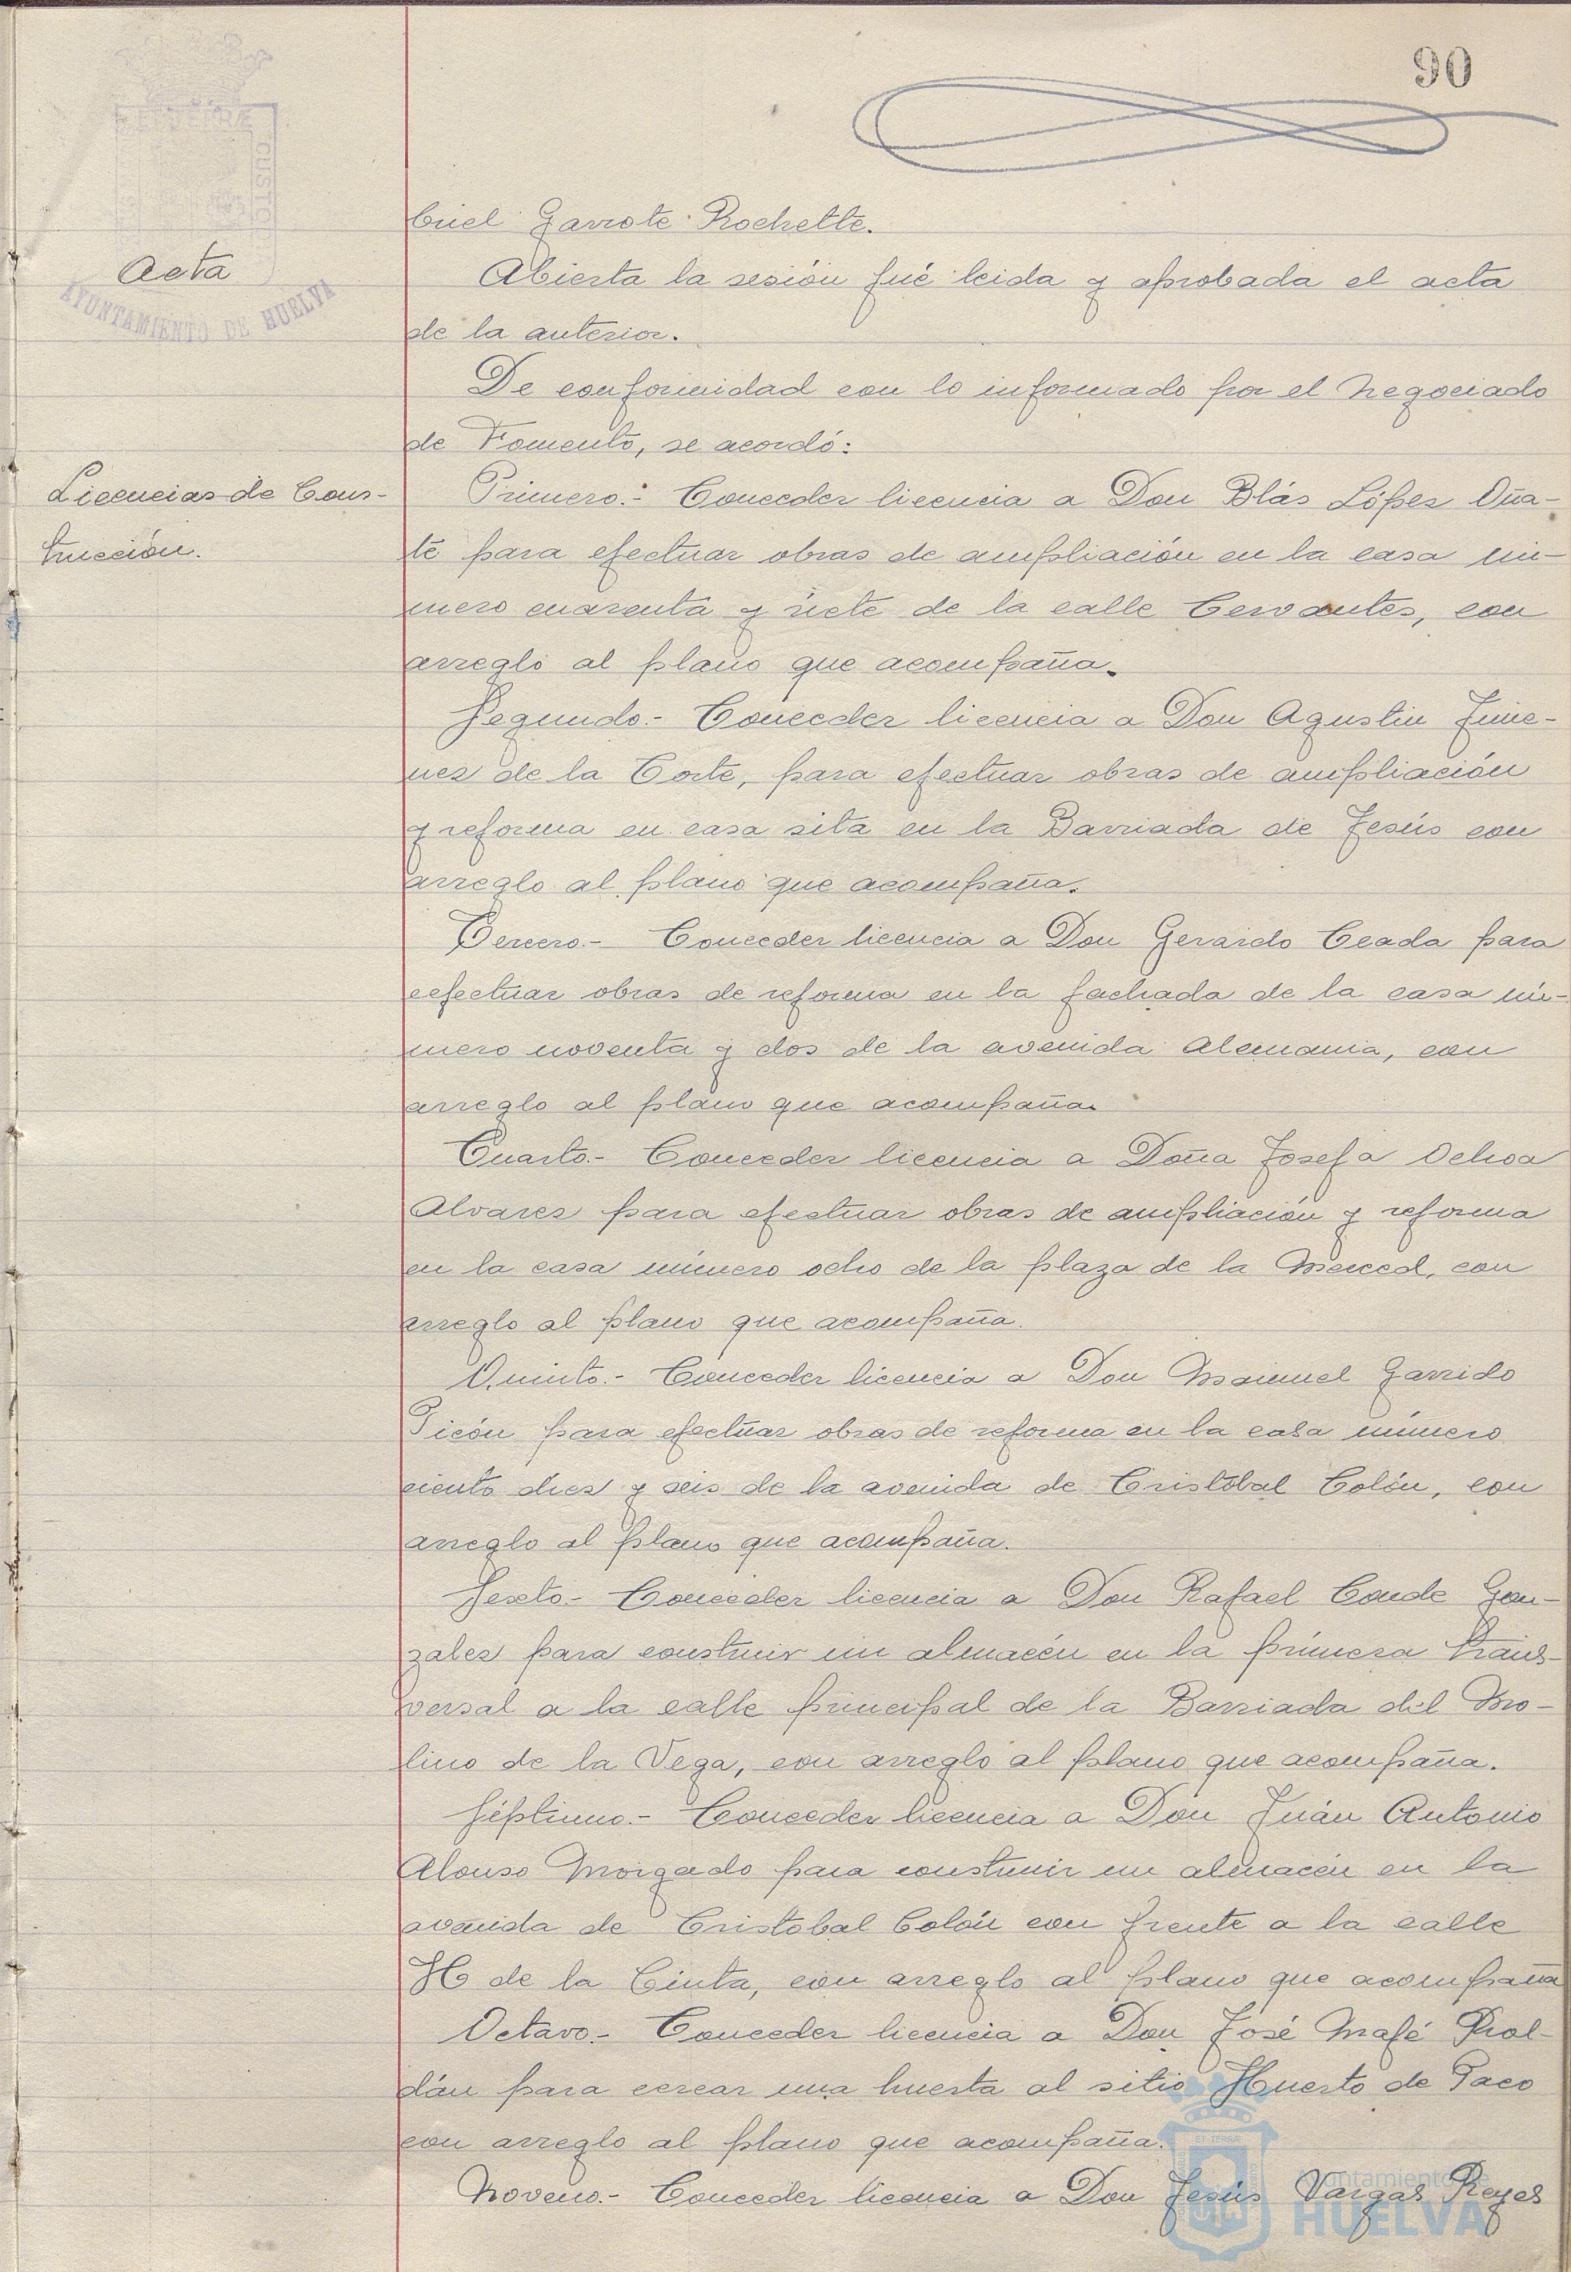 90
briel Garrote Rochette.
Acta
Abierta la sesión fué leida y aprobada el acta
AYUNTAMIENTO DE HUELVA
de la anterior.
De conformidad con lo informado por el Negociado
de Fomento, se acordó:
Licencias de Cons-
trucción.
Primero.- Conceder licencia a Don Blás López Oña-
te para efectuar obras de ampliación en la casa nú-
mero cuarenta y siete de la calle Cervantes, con
arreglo al plano que acompaña.
Segundo.- Conceder licencia a Don Agustin Jime-
nez de la Corte, para efectuar obras de ampliación
y reforma en casa sita en la Barriada de Jesús con
arreglo al plano que acompaña.
Tercero.- Conceder licencia a Don Gerardo Ceada para
eefectuar obras de reforma en la fachada de la casa nú-
mero noventa y dos de la avenida Alemania, con
arreglo al plano que acompaña.
Cuarto.- Conceder licencia a Doña Josefa Ochoa
Alvarez para efectuar obras de ampliación y reforma
en la casa número ocho de la plaza de la Merced, con
arreglo al plano que acompaña.
Quinto.- Conceder licencia a Don Manuel Garrido
Picón para efectuar obras de reforma en la casa número
ciento diez y seis de la avenida de Cristóbal Colón, con
arreglo al plano que acompaña.
Sexto.- Conceder licencia a Don Rafael Conde Gon-
zalez para construir un almacén en la primera trans-
versal a la calle principal de la Barriada del Mo-
lino de la Vega, con arreglo al plano que acompaña.
Séptimo.- Conceder licencia a Don Juán Antonio
Alonso Morgado para construir un almacén en la
avenida de Cristobal Colón con frente a la calle
H de la Cinta, con arreglo al plano que acompaña
Octavo.- Conceder licencia a Don José Mafé Rol-
dán para cercar una huerta al sitio Huerto de Paco
con arreglo al plano que acompaña.
Noveno.- Conceder licencia a Don Jesús Vargas Reyes
Ayuntamiento de
HUELVA